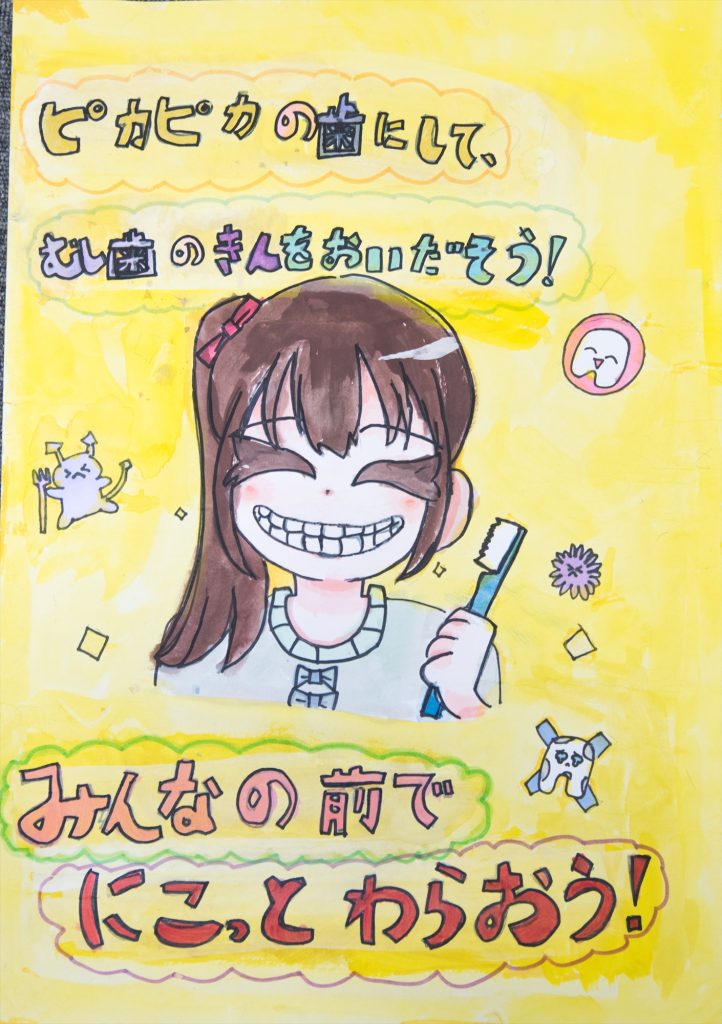 ピカピカの歯にして、
むし歯のきんをおいだそう!
みんなの前で
にこっとわらおう!